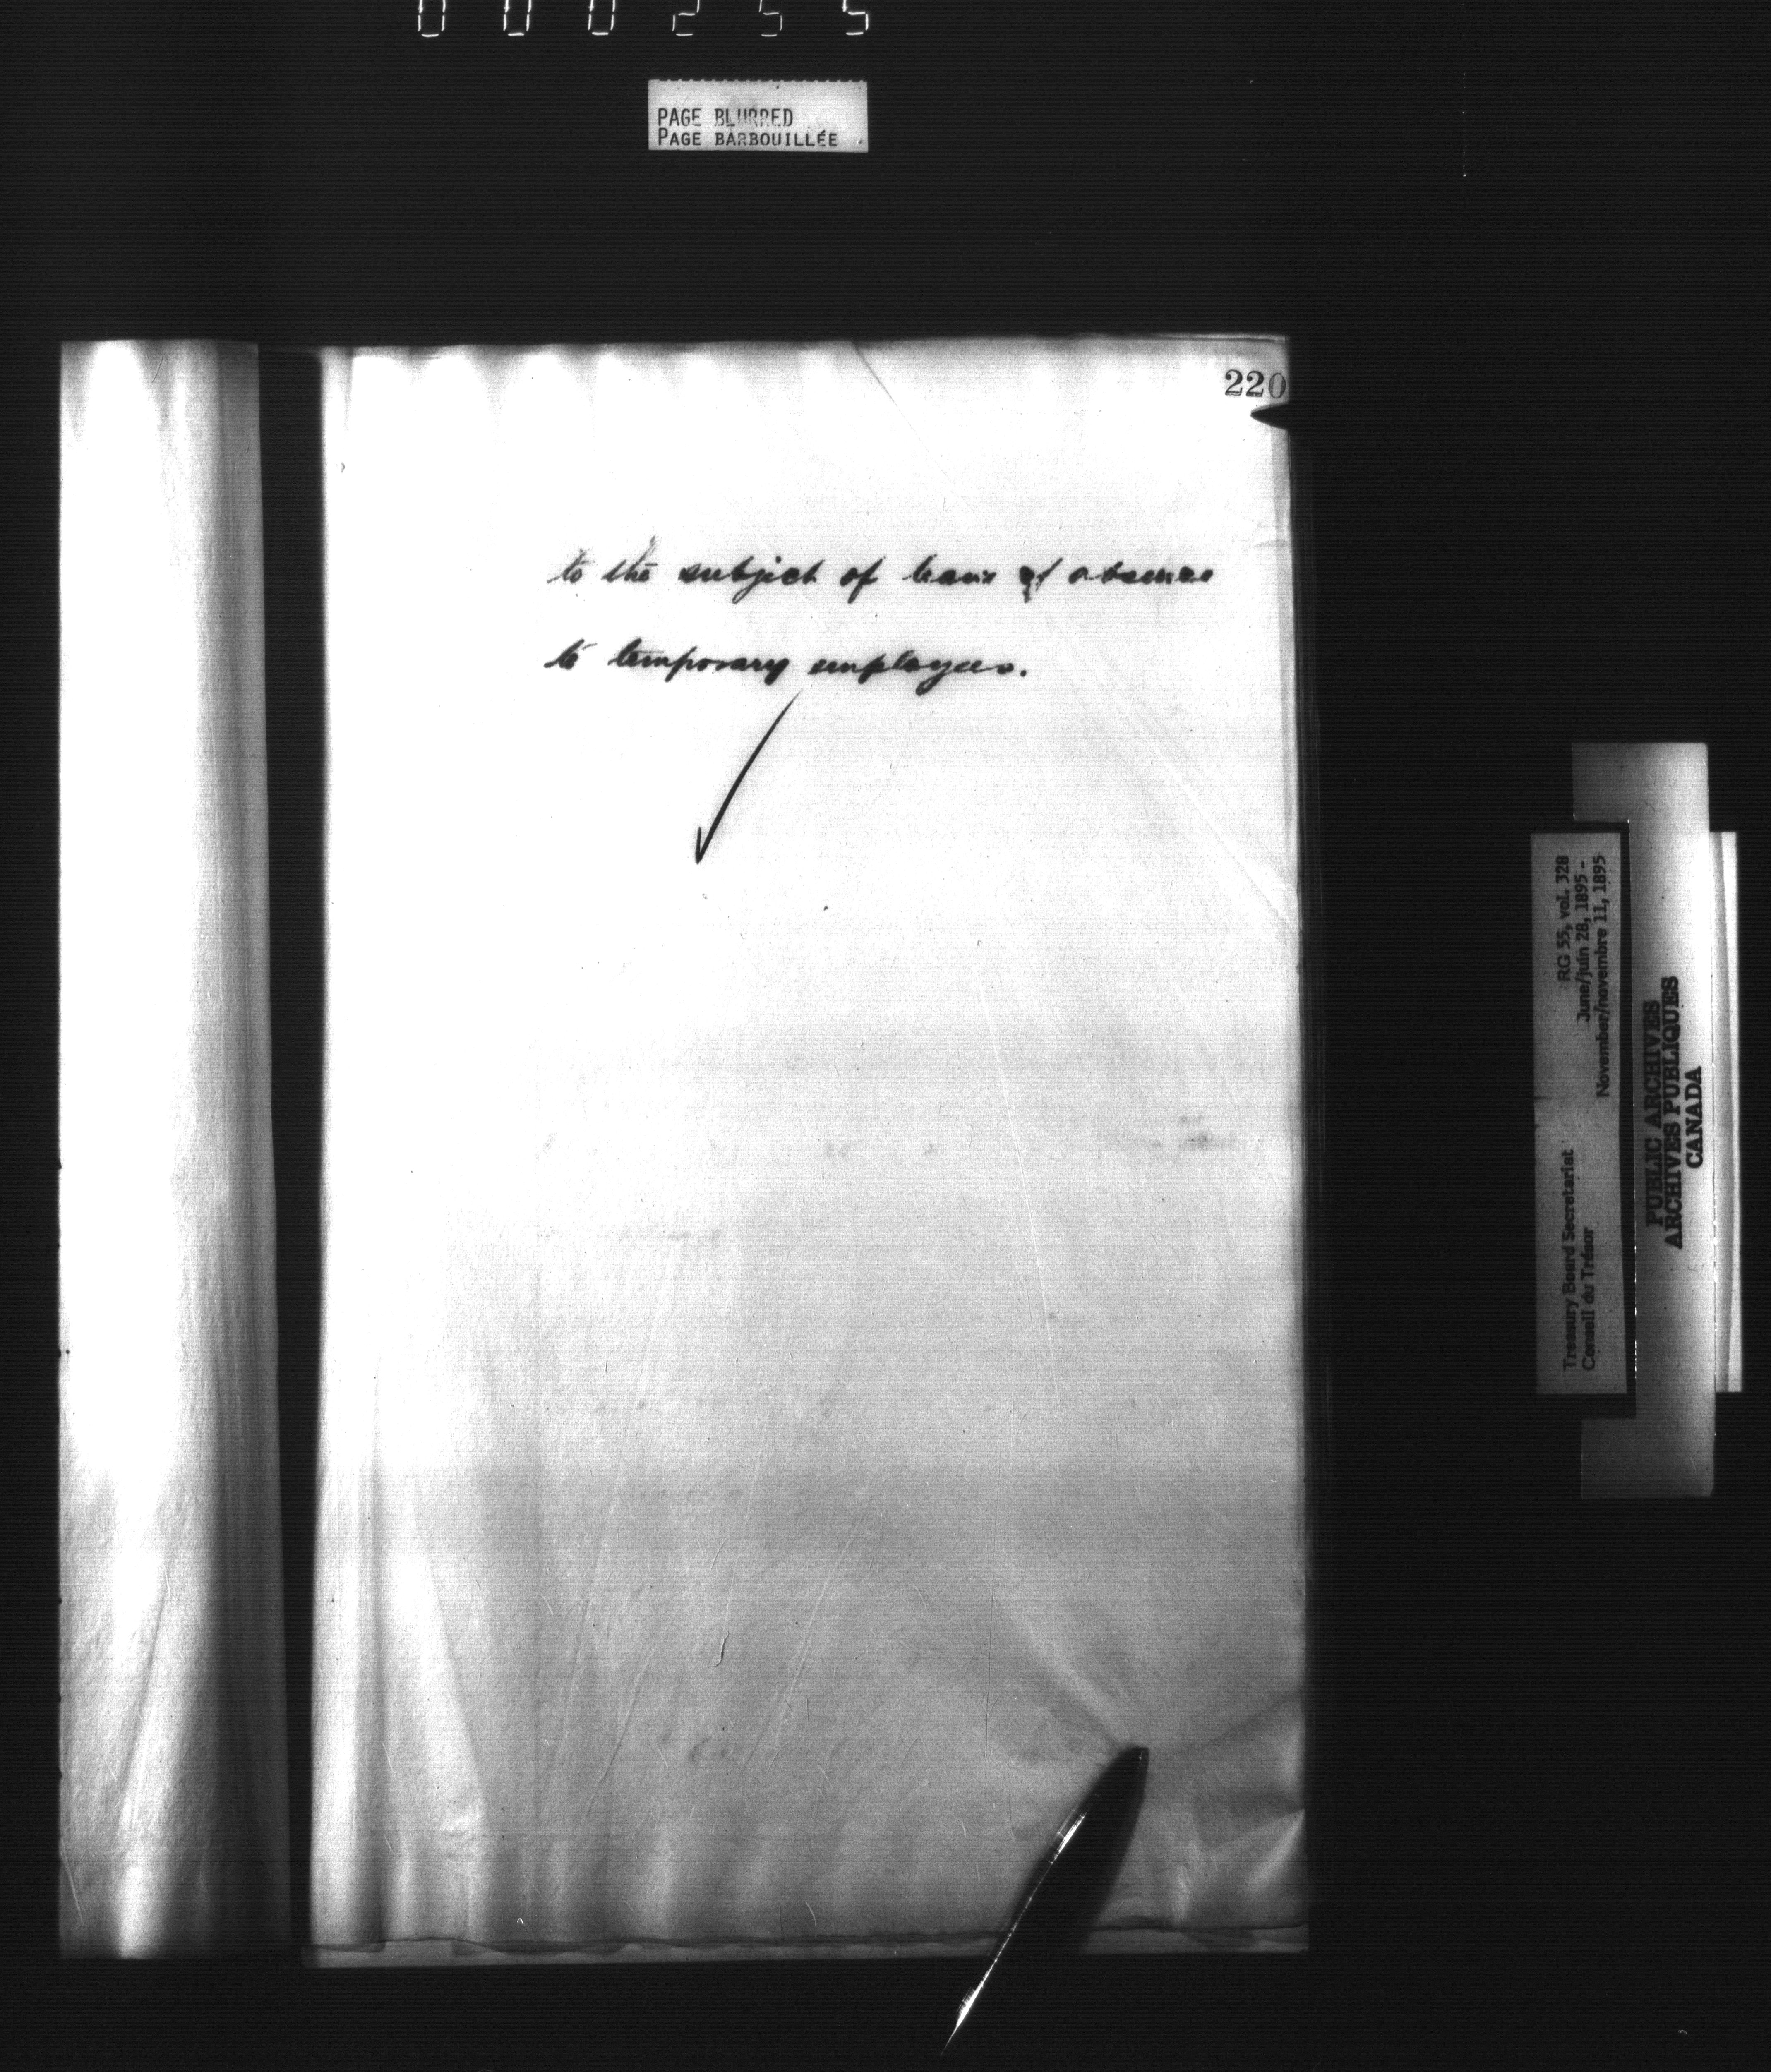 000255
PAGE BLURRED
PAGE BARBOUILLÉE
220
to the subject of leave of absence
to temporary employees.
RG 55, vol. 328
June/juin 28, 1895 -
November/novembre 11, 1895
Treasury Board Secretariat
Conseil du Trésor
PUBLIC ARCHIVES
ARCHIVES PUBLIQUES
CANADA